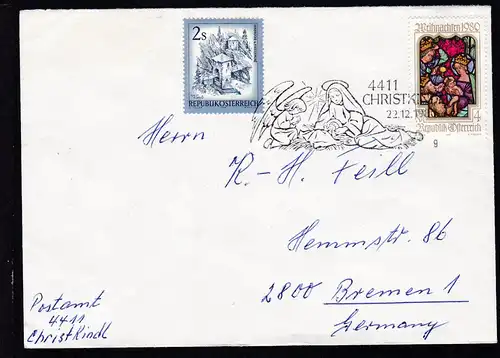 2s
REPUBLIK ÖSTERREICH
Weihnachten 1980
4
Republik Österreich
4411
CHRISTKINDL
9
Herrn
K.-H. Feill
Hemmstr. 86
2800 Bremen 1
Germany
Postamt
4411
Christkindl